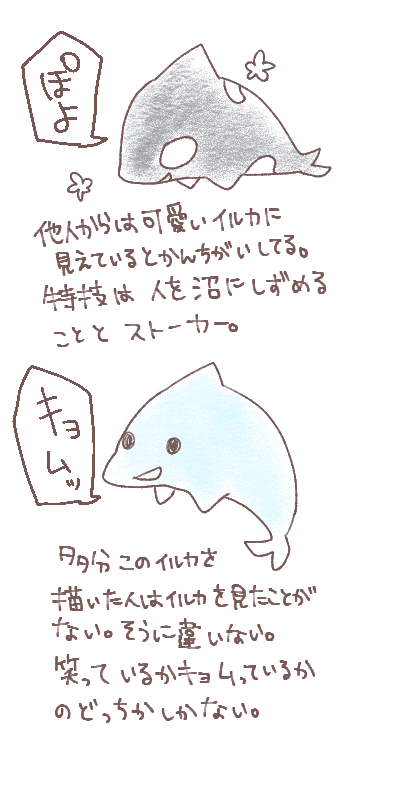 ぽよ
他人からは可愛いイルカに
見えているとかんちがいしてる。
特技は 人を沼にしずめる
ことと ストーカー。
キョムッ
多分このイルカを
描いた人はイルカを見たことが
ない。そうに違いない。
笑っているかキョムっているか
のどっちかしかない。